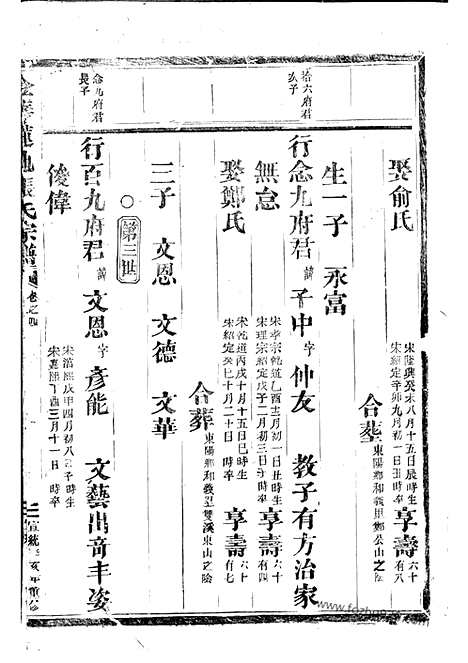 娶俞氏
宋隆興癸未八月十五日辰時生
宋紹定辛卯九月初一日丑時卒
享壽
六十
有八
合塟東陽鄉和義里鄭公山之陰
生一子 永富
拾六府君
次子
行念九府君諱子申字仲友 教子有方治家
無怠
宋孝宗乾道乙酉三月初一日丑時生
宋理宗紹定戊子二月初三日亥時卒
享壽
六十
有四
娶鄭氏
宋乾道丙戌十月十五日巳時生
宋紹定癸巳十月二十日 時卒
享壽
六十
有七
合葬東陽鄉和義里雙溪東山之陰
三子 文恩 文德 文華
第三世
念九府君
長子
行百九府君諱文恩字彥能 文藝出奇丰姿
俊偉
宋淳熙戊申四月初八日子時生
宋嘉熙丁酉三月十一日 時卒
張氏宗譜 卷之四
宣統